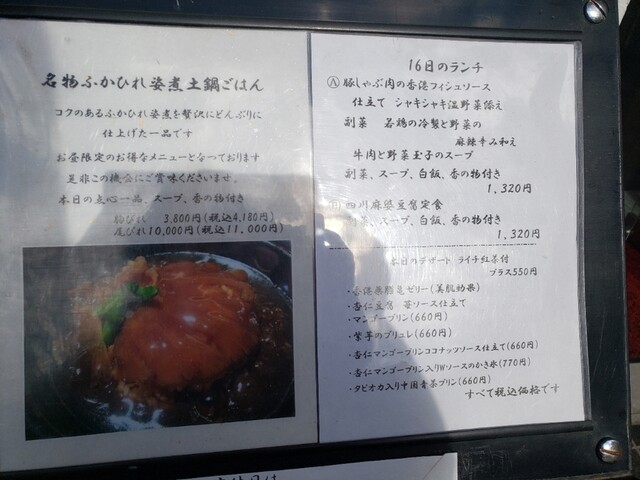 名物ふかひれ姿煮土鍋ごはん
コクのあるふかひれ姿煮を贅沢にどんぶりに
仕上げた一品です
お昼限定のお得なメニューとなっております
是非この機会にご賞味くださいませ。
本日の点心一品、スープ、香の物付き
胸びれ 3,800円(税込4,180円)
尾びれ10,000円(税込11,000円)
16日のランチ
Ⓐ 豚しゃぶ肉の香港フィシュソース
仕立て シャキシャキ温野菜添え
副菜 若鶏の冷製と野菜の
麻辣辛み和え
牛肉と野菜玉子のスープ
副菜、スープ、白飯、香の物付き
1,320円
四川麻婆豆腐定食
副菜、スープ、白飯、香の物付き
1,320円
本日のデザート ライチ紅茶付
プラス550円
・香港亀ゼリー(美肌効果)
・杏仁豆腐 苺ソース仕立て
・マンゴープリン(660円)
・紫芋のブリュレ(660円)
・杏仁マンゴープリンココナッツソース仕立て(660円)
・杏仁マンゴープリン入りWソースのかき氷(770円)
・タピオカ入り中国青茶プリン(660円)
すべて税込価格です